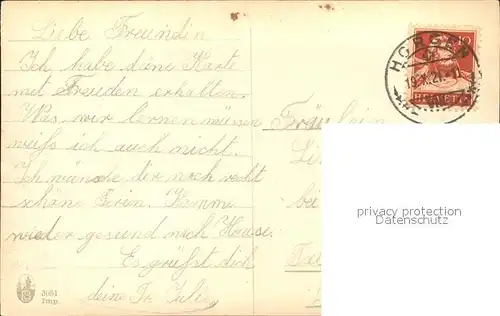 Liebe Freundin
Ich habe deine Karte
mit Freuden erhalten.
Was wir lernen müssen
weiß ich auch nicht.
Ich wünsche dir noch recht
schöne Ferien. Komm
wieder gesund nach Hause.
Es grüßt dich
deine Fr. Julie
Fräulein
bei
HORGEN
10
HELVETIA
privacy protection
Datenschutz
3051
Imp.